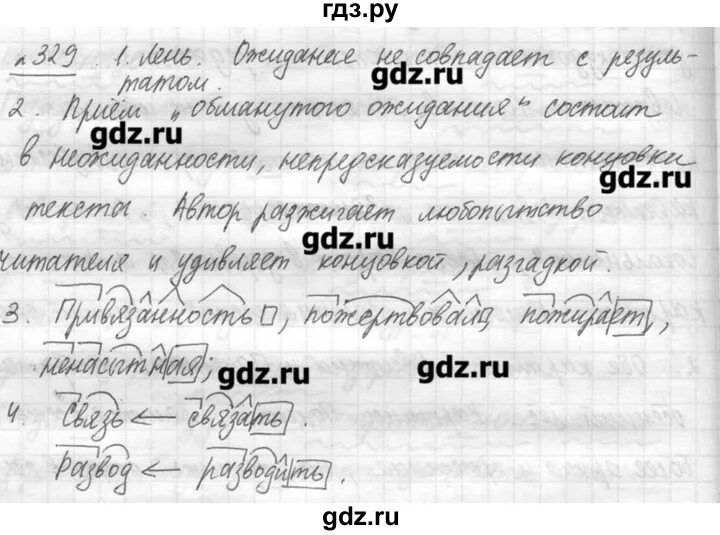 гдз.ру
№329. 1. Лень. Ожидание не совпадает с резуль-
татом.
gdz.ru
2. Приём „обманутого ожидания" состоит
gdz.ru
в неожиданности, непредсказуемости концовки
gdz.ru
текста. Автор разжигает любопытство
gdz.ru
читателя и удивляет концовкой, разгадкой.
3. Привязанность, пожертвовал, пожирает,
ненасытная;
gdz.ru
gdz.ru
4. Связь ← связать.
Развод ← разводить.
gdz.ru
gdz.ru